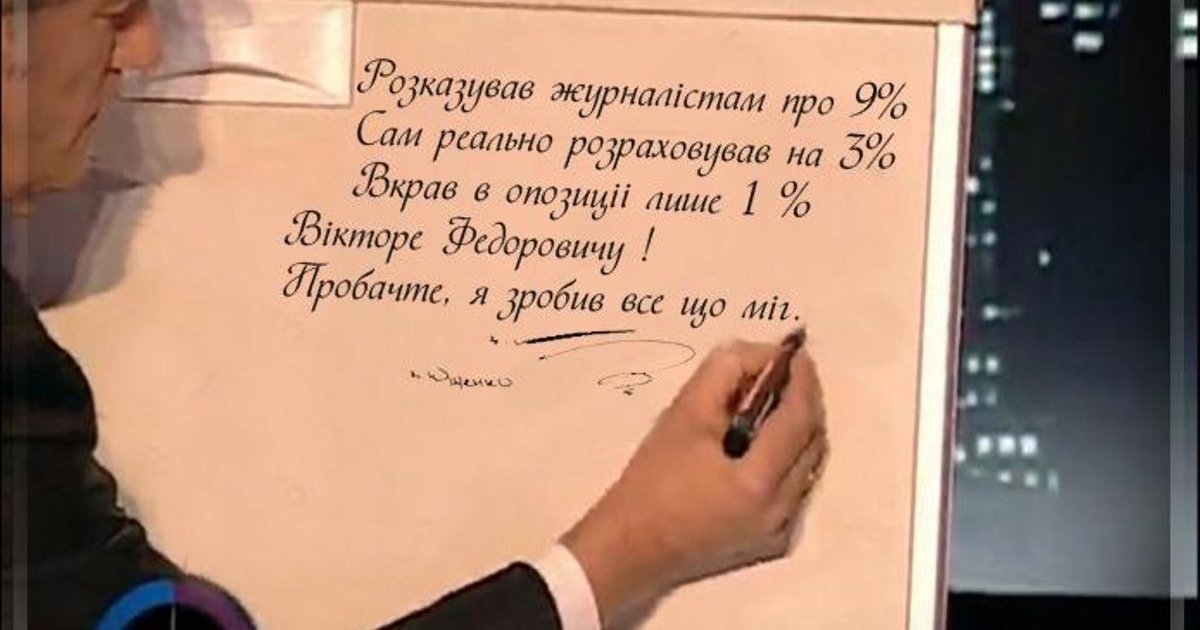 Розказував журналістам про 9%
Сам реально розраховував на 3%
Вкрав в опозиціі лише 1 %
Вікторе Федоровичу !
Пробачте, я зробив все що міг.
Ющенко